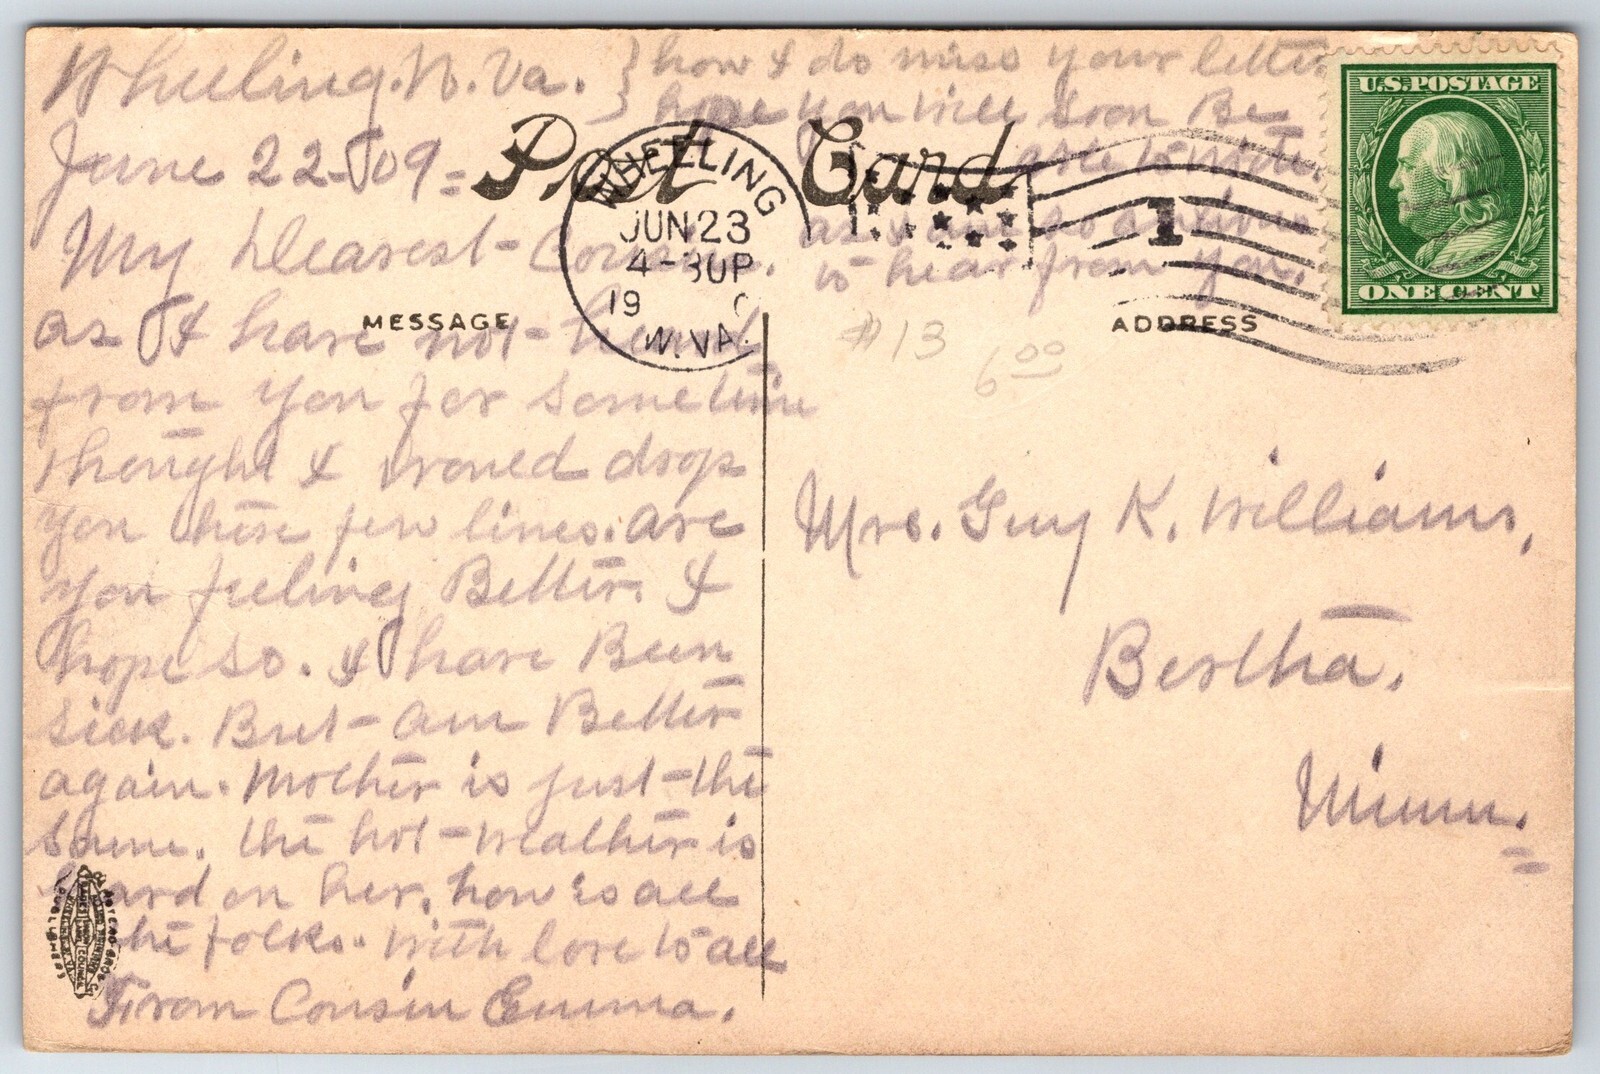 Wheeling. W. Va.
June 22-09=
My Dearest- Cousin.
as I have not- heard
from you for sometime
thought I would drop
you these few lines. are
you feeling Better. I
hope so. I have Been
sick. But- am Better
again. Mother is just- the
same. the hot- weather is
hard on her. how is all
the folks. With love to all
From Cousin Emma.
how I do miss your letters
hope you will soon Be
able to write.
as I am so anxious
to hear from you.
Post Card
MESSAGE
ADDRESS
WHEELING
JUN 23
4-30P
19
W.VA.
1
U.S. POSTAGE
ONE CENT
#13
6 00
Mrs. Guy K. Williams,
Bertha.
Minn.
PUBLISHERS